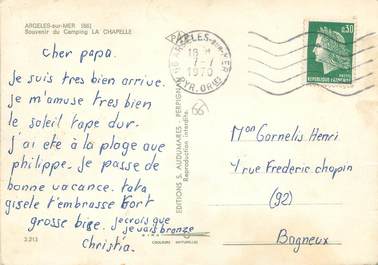 ARGELES-sur-MER (66)
Souvenir du Camping LA CHAPELLE
cher papa.
Je suis tres bien arrive.
je m'amuse tres bien
le soleil tape dur.
j'ai ete à la plage avec
philippe. je passe de
bonne vacance. tata
gisele t'embrasse fort
grosse bise. je crois que
je vais bronze
Christia.
2.213
COULEURS NATURELLES
EDITIONS S. AUDUMARES - PERPIGNAN
Reproduction interdite.
66
ARGELES-sur-MER
18 H
7-7
1970
PYR. OR(LES)
0,30
POSTES
REPUBLIQUE FRANÇAISE
Mon Cornelis Henri
4 rue Frederic chopin
(92)
Bagneux